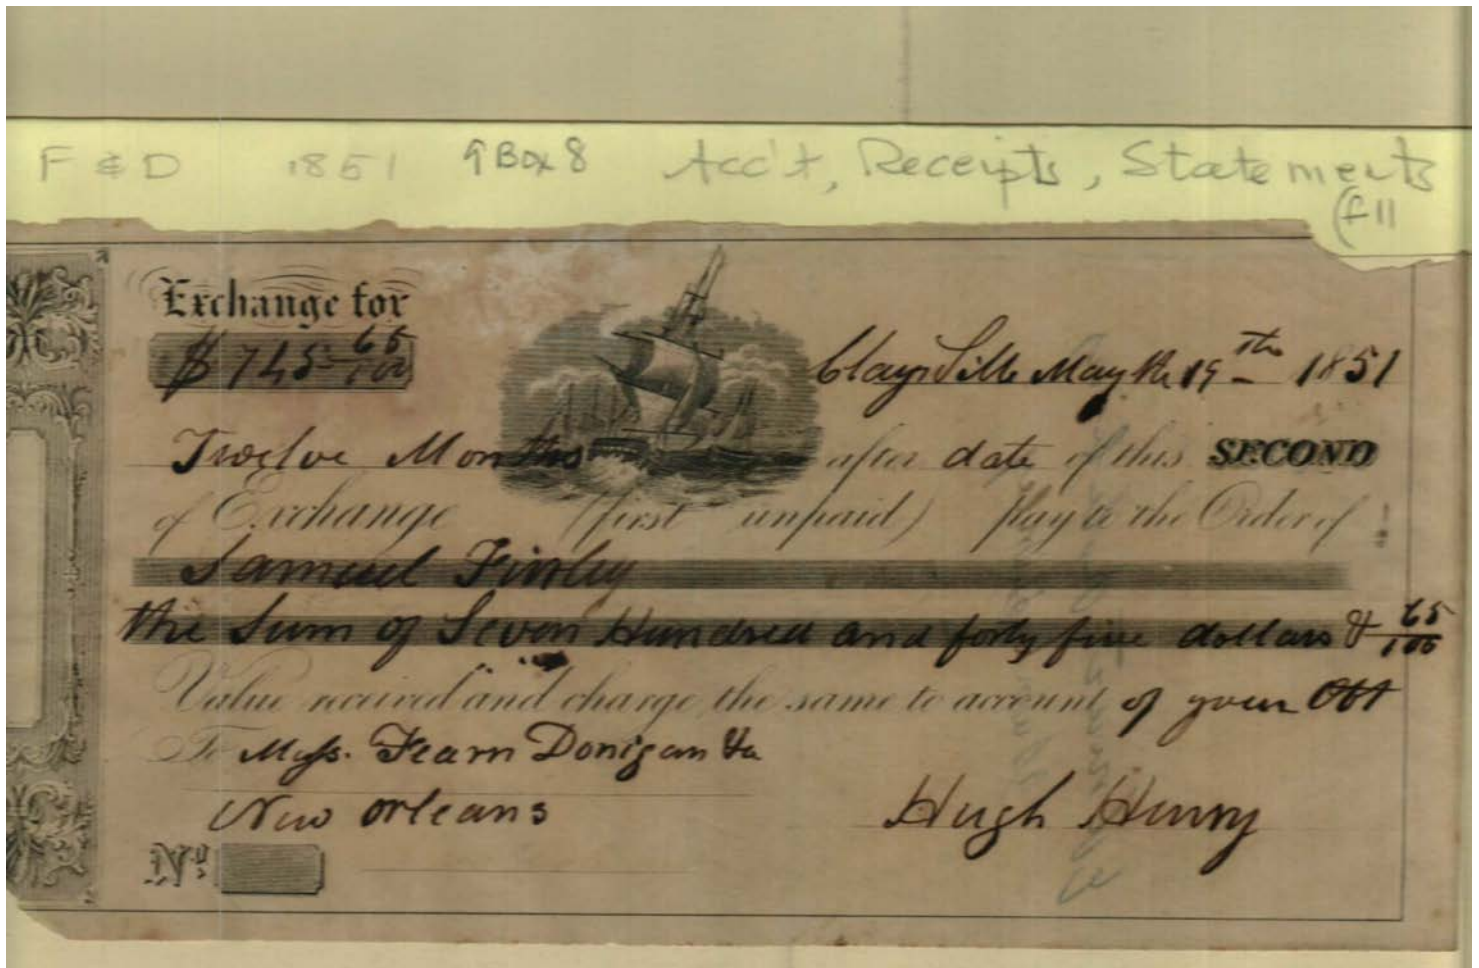 F & D 1851 9 Box 8 Acc't, Receipts, Statements
(f 11
Exchange for
$ 745 65/100
ClaysVille May the 19th 1851
Twelve Months after date of this SECOND
of Exchange (first unpaid) Pay to the Order of
Samuel Finley
the Sum of Seven Hundred and forty five dollars & 65/100
Value received and charge the same to account of your Obt
To Mess. Fearn Donigan & Co
New Orleans
Hugh Henry
No